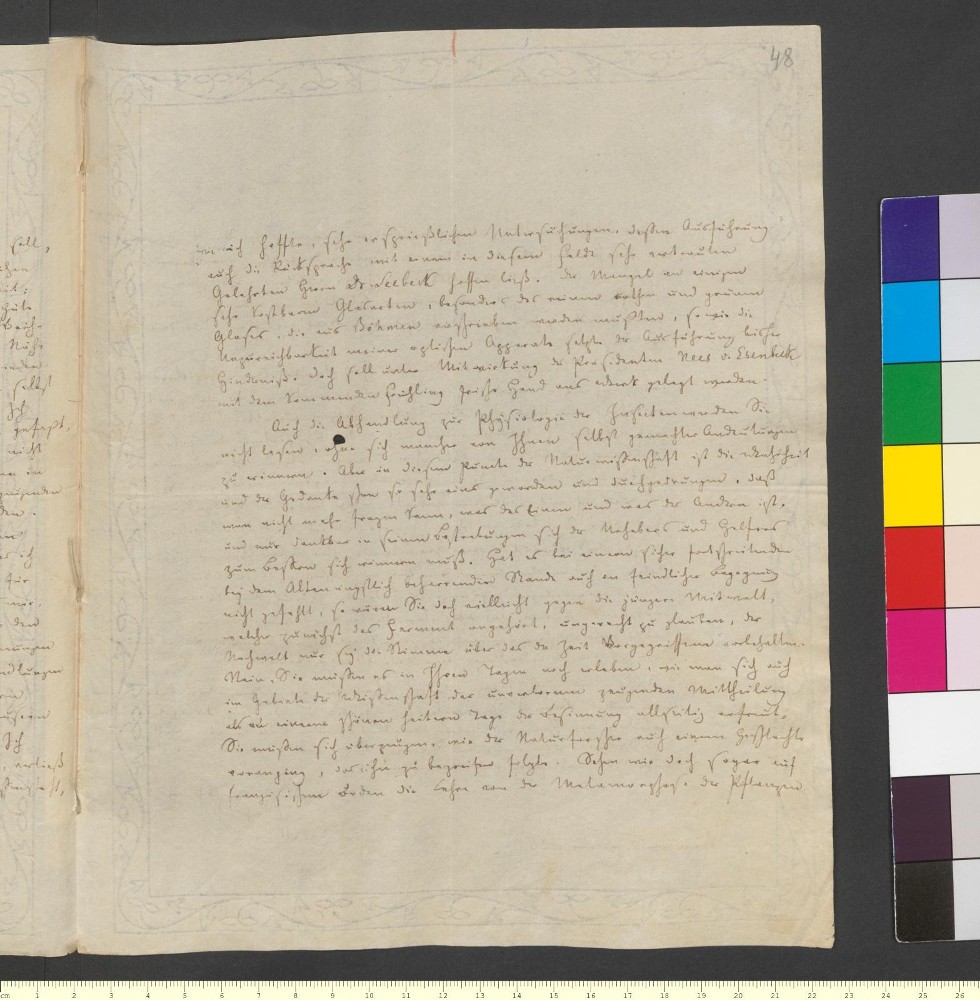 48
ich hoffte, sehr ersprießlichen Untersuchungen, deßen Ausführung
auch die Rücksprache mit einem in diesem Felde sehr vertrauten
Gelehrten Herrn Dr. Seebeck hoffen ließ. Der Mangel an einigen
sehr kostbaren Glasarten, besonders des reinen rothen und grünen
Glases, die aus Böhmen verschrieben werden mußten, so wie die
Unzureichbarkeit meiner optischen Apparate setzte der Ausführung bisher
Hinderniß. Doch soll unter Mitwirkung des Präsidenten Nees v. Esenbeck
mit dem kommenden Frühling frische Hand ans Werk gelegt werden.
Auch die Abhandlung zur Physiologie der Insecten werden Sie
nicht lesen, ohne sich mancher von Ihnen selbst gemachter Andeutungen
zu erinnern. Aber in diesem Puncte der Naturwissenschaft ist die Wahrheit
und der Gedanke schon so sehr eins geworden und durchgedrungen, daß
man nicht mehr fragen kann, was des Einen und was des Andern ist,
und nur dankbar in seinen Bestrebungen sich des Urhebers und Helfers
zum Beßern sich erinnern muß. Hat es bei einem sicher fortschreitenden
bei dem Alten ängstlich beharrenden Stande auch an feindlicher Begegnung
nicht gefehlt, so wären Sie doch vielleicht gegen die jüngere Mitwelt,
welcher zunächst das Ferment angehört, ungerecht zu glauben, der
Nachwelt nur sey die Stimme über das der Zeit Vorgegriffene vorbehalten.
Nein, Sie müßen es in Ihren Tagen noch erleben, wie man sich auch
im Gebiete der Wißenschaft der unverlornen zeugenden Mittheilung
als an einem schönen heitern Tage der Besinnung allseitig erfreut.
Sie müßen sich überzeugen, wie der Naturforscher auch einem Geschlechte
voranging, das ihn zu begreifen folgte. Sehen wir doch sogar auf
französischem Boden die Lehre von der Metamorphose der Pflanzen